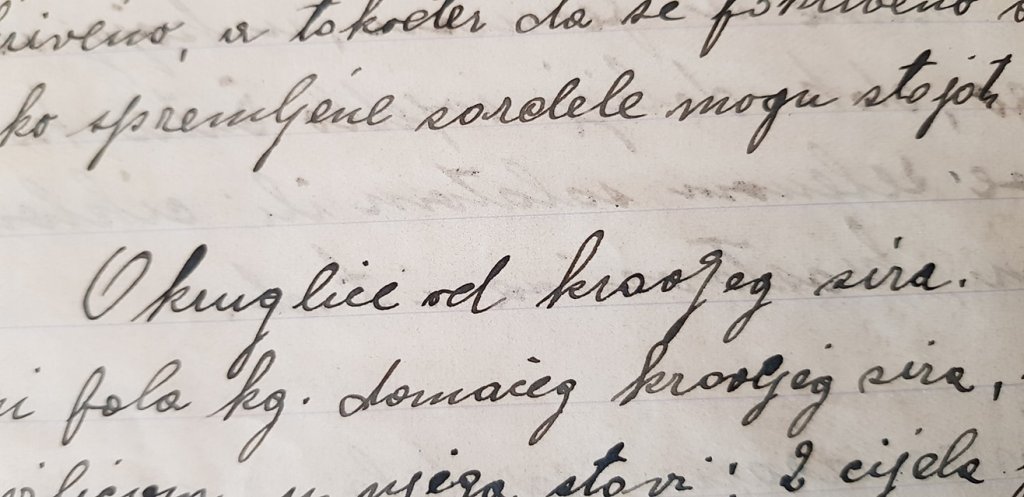 a također da se
spremljene sardele mogu stojat
Okruglice od kravljeg sira.
pola kg. domaćeg kravljeg sira,
u njega stavi: 2 cijela